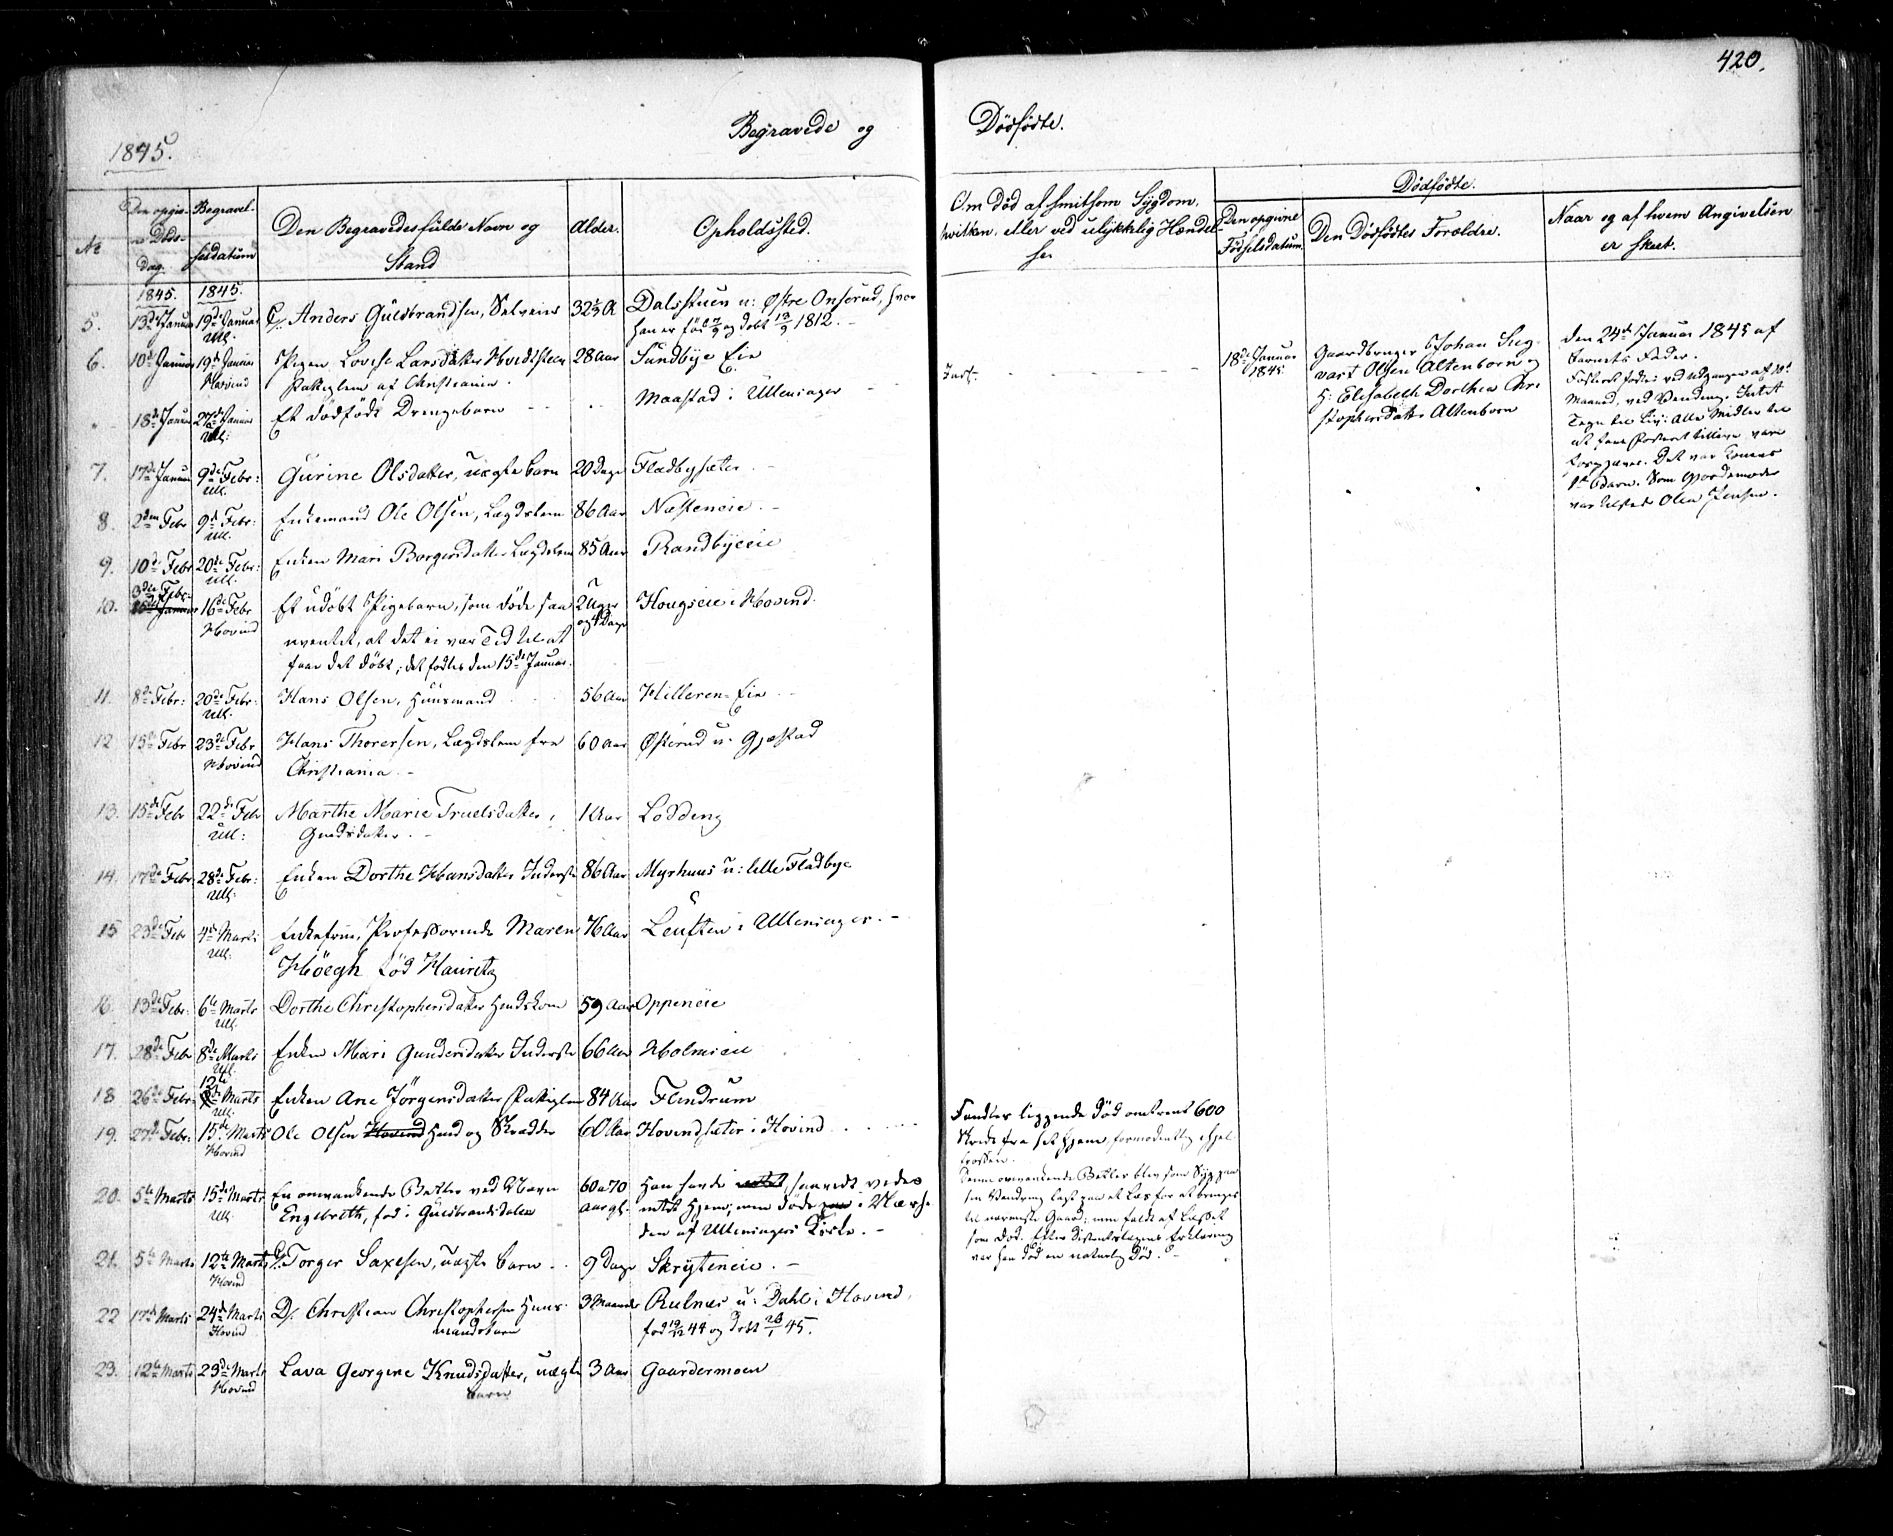 420.
1845.
Begravede og Dødfødte.
No
Den opgivne Døds-Dag.
Begravelsesdatum
Den Begravedes fulde Navn og Stand
Alder.
Opholdssted.
Om død af smitsom Sygdom, hvilken, eller ved ulykkelig Hændelse
Dødfødte.
Den opgivne Fødselsdatum.
Den Dødfødtes Forældre.
Naar og af hvem Angivelsen er skeet.
1845. 1845.
5. 13de Januar 19de Januar Ull. Anders Guldbrandsen, Selveier 32 Dalsstuen u: Østre Onserud, hvor
han er fød og døbt 1812.
6. 10de Januar 19de Januar Hovind Pigen Lovise Larsdatter Hvidsteen 28 Aar Sundbye Eie
af Christiania.
18de Januar 27de Januar Ull: Et dødfødt Drengebarn Maastad i Ullensager
18de Januar 1845 Gaardbruger Johan Sieg-
vart Olsen Altenborn og
H: Elisabeth Dorthea Chri-
stophersdatter Altenborn
Den 24de Januar 1845 af
Barnets Fader.
Maaned, ved Vending. Intet
Tegn til Liv: Alle Midler til
forgjæves. Det var Konens
1ste Barn. Som Gjordemoder
var tilstede Olea Jensen.
7. 17de Januar 9de Febr: Ull. Gurine Olsdatter, uægte Barn 20 Dage Fladbysæter
8. 2den Febr 9de Febr: Ull. Enkemand Ole Olsen, Lægdslem 86 Aar Næsteneie.
9. 10de Febr 20de Febr: Ull. Enken Mari Borgersdatter Lægdslem 85 Aar Randbyeeie
3die Febr:
10. 16de Febr Hovind Et udøbt Pigebarn, som døde saa 2 Uger Hougseie i Hovind.
uventet, at det ei var Tid til at og 4 Dage
faae det døbt; det fødtes den 15de Januar.
11. 8de Febr: 20de Febr: Ull. Hans Olsen, Huusmand 56 Aar Hilleren-Eie
12 15de Febr 23de Febr Hovind Hans Thoresen, Lægdslem fra 60 Aar Østerud u: Gjestad
Christiania.
13. 15de Febr 22de Feb Ull: Marthe Marie Truelsdatter, 1 Aar Lodding
14. 17de Febr 28de Febr: Ull: Enken Dorthe Hansdatter Inderste 86 Aar Myrhuus u: lille Fladbye
15 23de Febr 4de Marts Ull. Enkefrue, Professorinde Maren 76 Aar i Ullensager.
Høegh fød Hauritz
16. 13de Febr: 6te Marts Ull. Dorthe Christophersdatter 59 Aar Oppeneie
17. 28de Febr 8de Marts Ull. Enken Mari Gundersdatter Inderste 66 Aar Holmseie
12te
18 26de Febr: Marts Ull. Enken Ane Jørgensdatter 84 Aar Flendrum
19. 27de Febr: 15de Marts Hovind Ole Olsen Hovind og Skrædder 60 Aar Hovindsæter i Hovind
Fandtes liggende død omtrent 600
Skridt fra sit Hjem, formodentlig ihjel-
frossen.
20. 5te Marts 15de Marts Ull. En omvankende Betler ved Navn 60 a 70 Han havde
Engebreth, fød i Guldbrandsdalen Aar gl. intet Hjem, men døde i Nærhe-
den af Ullensagers Kirke.
Denne omvankende Betler blev som Syg paa
sin Vandring lagt paa et Læs for at bringes
til nærmeste Gaard; men faldt af Læsset
som død. Efter Districtslægens Erklæring
var han død en naturlig Død.
21. 5te Marts 12te Marts Hovind Torger Saxesen, uægte Barn 9 Dage Skryteneie.
22 17de Marts 24de Marts Hovind D. Christian Christophersen Huus- 3 Maaneder Rulnæs u: Dahl i Hovind,
mandsbarn fød 19/12 44 og døbt 26/1 45.
23. 12te Marts 23de Marts Hovind Lava Georgine Knudsdatter, uægte 3 Aar Gaardermoen
Barn